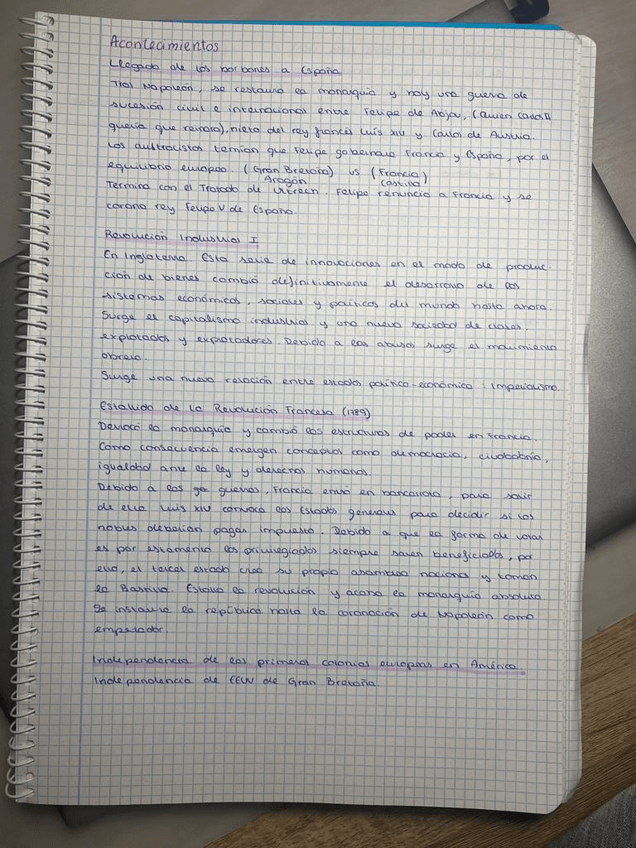 Acontecimientos
Llegada de los borbones a España
Tras Napoleón, se restaura la monarquía y hay una guerra de
sucesión civil e internacional entre Felipe de Anjou, (quien Carlos II
quería que reinara), nieto del rey francés Luis XIV y Carlos de Austria.
Los austracistas temían que Felipe gobernara Francia y España, por el
equilibrio europeo. (Gran Bretaña) vs (Francia)
Aragón Castilla
Termina con el Tratado de Utrech. Felipe renuncia a Francia y se
corona rey Felipe V de España.
Revolución Industrial I
En Inglaterra. Esta serie de innovaciones en el modo de produc-
ción de bienes cambió definitivamente el desarrollo de los
sistemas económicos, sociales y políticos del mundo hasta ahora.
Surge el capitalismo industrial y una nueva sociedad de clases
explotados y explotadores. Debido a los abusos surge el movimiento
obrero.
Surge una nueva relación entre estados político-económico: Imperialismo.
Estallido de la Revolución Francesa (1789)
Derrocó la monarquía y cambió las estructuras de poder en Francia.
Como consecuencia emergen conceptos como democracia, ciudadanía,
igualdad ante la ley y derechos humanos.
Debido a las guerras, Francia entró en bancarrota, para salir
de ella Luis XIV convoca los Estados generales para decidir si los
nobles deberían pagar impuesto. Debido a que la forma de votar
es por estamento los privilegiados siempre salen beneficiados, por
ello, el tercer estado crea su propia asamblea nacional y toman
la Bastilla. Estalla la revolución y acaba la monarquía absoluta
Se instaura la república hasta la coronación de Napoleón como
emperador.
Independencia de las primeras colonias europeas en América.
Independencia de EEUU de Gran Bretaña